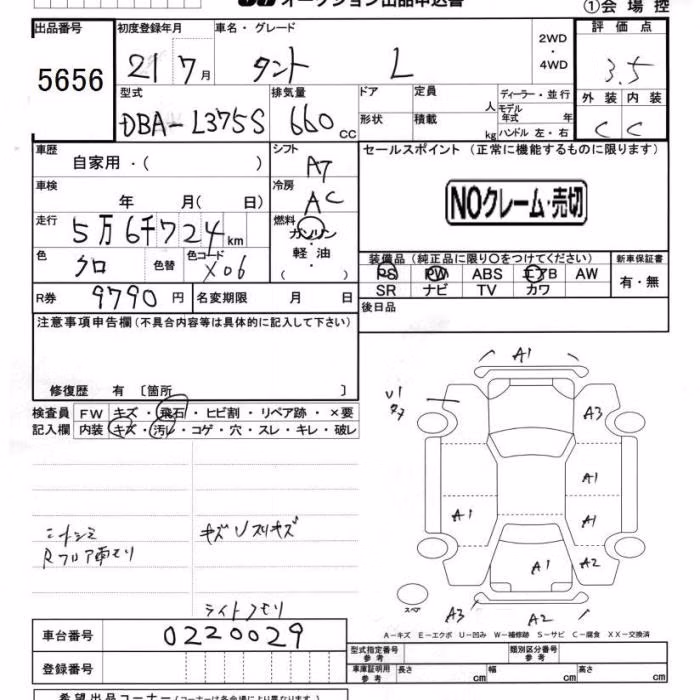 オークション出品申込書
①会場控
出品番号 初度登録年月 車名・グレード 評価点
5656 21 7月 タント L 2WD・4WD 3.5
型式 排気量 ドア 定員 人 ディーラー・並行 外装 内装
DBA-L375S 660cc 形状 積載 kg モデル年式 年 ハンドル 左・右 C C
車歴 自家用・( ) シフト A7 セールスポイント (正常に機能するものに限ります)
車検 年 月(日) 冷房 AC
NOクレーム・売切
走行 5万6千724km 燃料 ガソリン・軽油・( )
色 クロ 色替 色コード X06
装備品 (純正品に限り○をつけてください) 新車保証書
PS PW ABS エアB AW 有・無
SR ナビ TV カワ
R券 9790円 名変期限 月 日
後日品
注意事項申告欄(不具合内容等は具体的に記入して下さい)
修復歴 有〔箇所 〕
検査員記入欄
FW キズ・飛石・ヒビ割・リペア跡・×要
内装 キズ・汚レ・コゲ・穴・スレ・キレ・破レ
A1
U1
A3
A1
A1
A1
A2
A1
A3 A2
スペア
Rフロア雨モリ
ライトクモリ
A－キズ E－エクボ U－凹み W－補修跡 S－サビ C－腐食 XX－交換済
車台番号 0220029
型式指定番号 参考 類別区分番号 参考
登録番号
車庫証明用 参考 長さ cm 幅 cm 高さ cm
希望出品コーナー(コーナーは各会場により異なります)